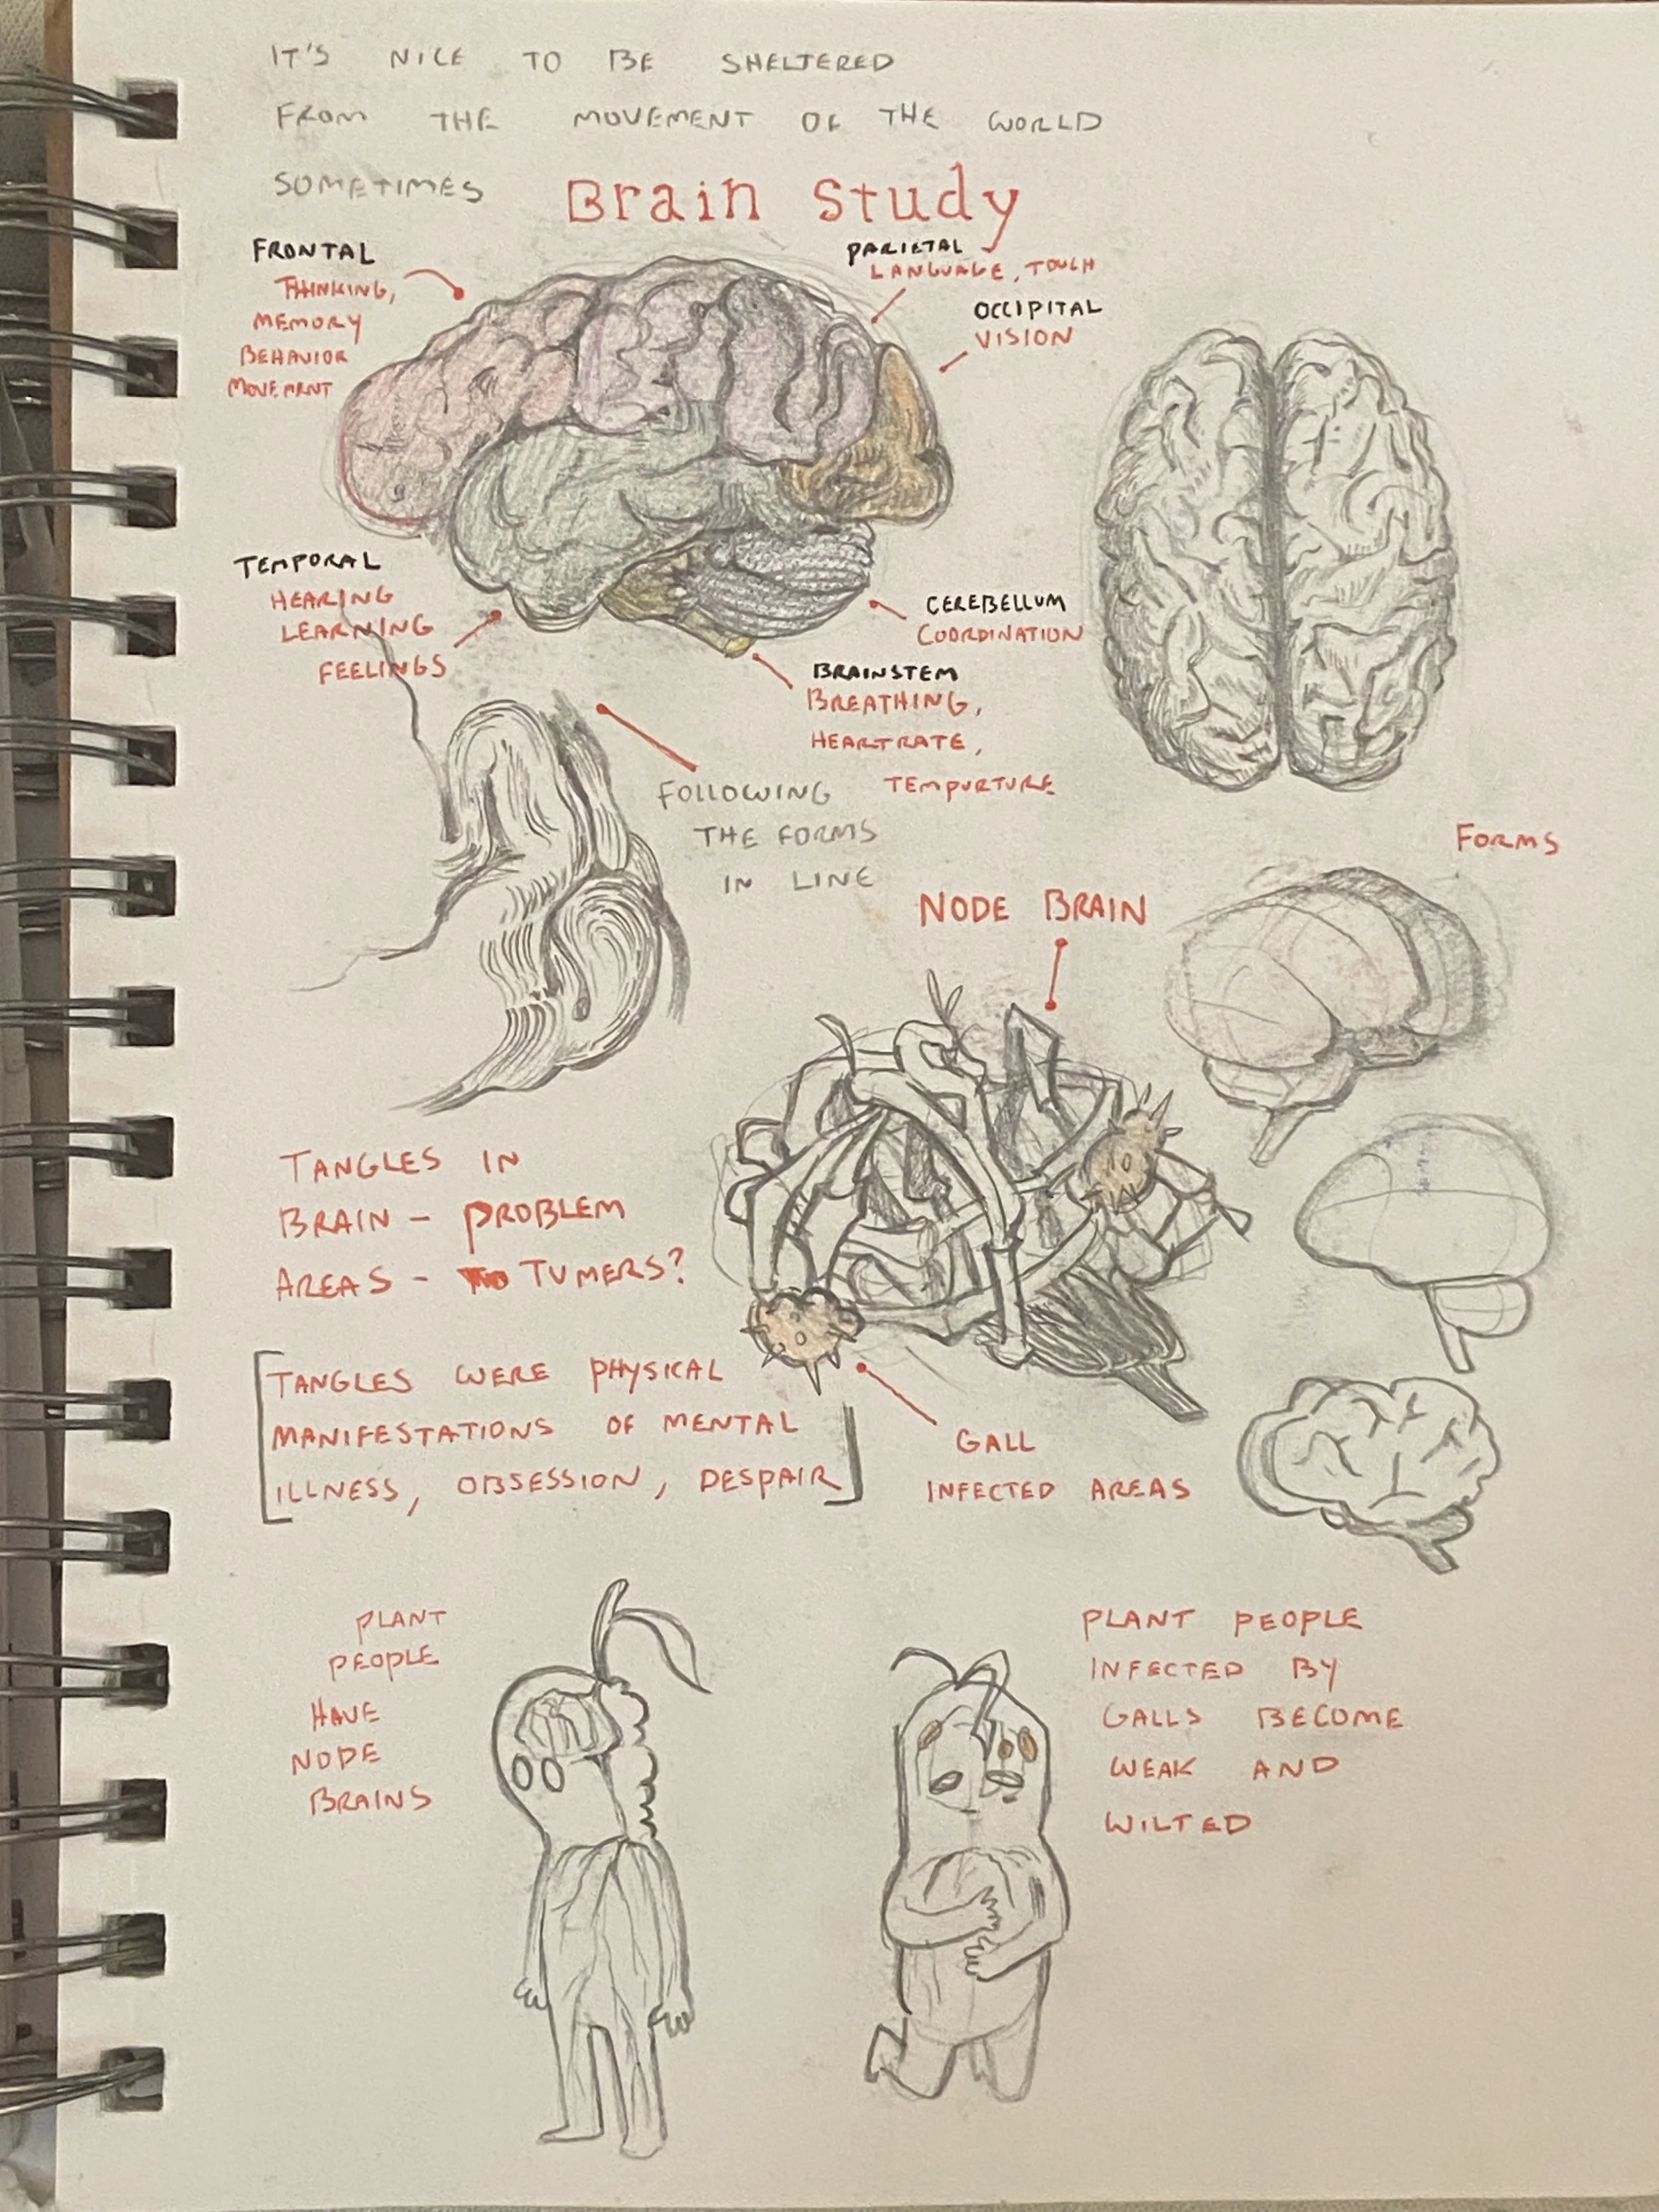 IT'S NICE TO BE SHELTERED
FROM THE MOVEMENT OF THE WORLD
SOMETIMES
Brain Study
FRONTAL
THINKING,
MEMORY
BEHAVIOR
MOVEMENT
PARIETAL
LANGUAGE, TOUCH
OCCIPITAL
VISION
TEMPORAL
HEARING
LEARNING
FEELINGS
CEREBELLUM
COORDINATION
BRAINSTEM
BREATHING,
HEARTRATE,
TEMPURTURE
FOLLOWING
THE FORMS
IN LINE
FORMS
NODE BRAIN
TANGLES IN
BRAIN - PROBLEM
AREAS - TUMERS?
[TANGLES WERE PHYSICAL
MANIFESTATIONS OF MENTAL
ILLNESS, OBSESSION, DESPAIR]
GALL
INFECTED AREAS
PLANT
PEOPLE
HAVE
NODE
BRAINS
PLANT PEOPLE
INFECTED BY
GALLS BECOME
WEAK AND
WILTED